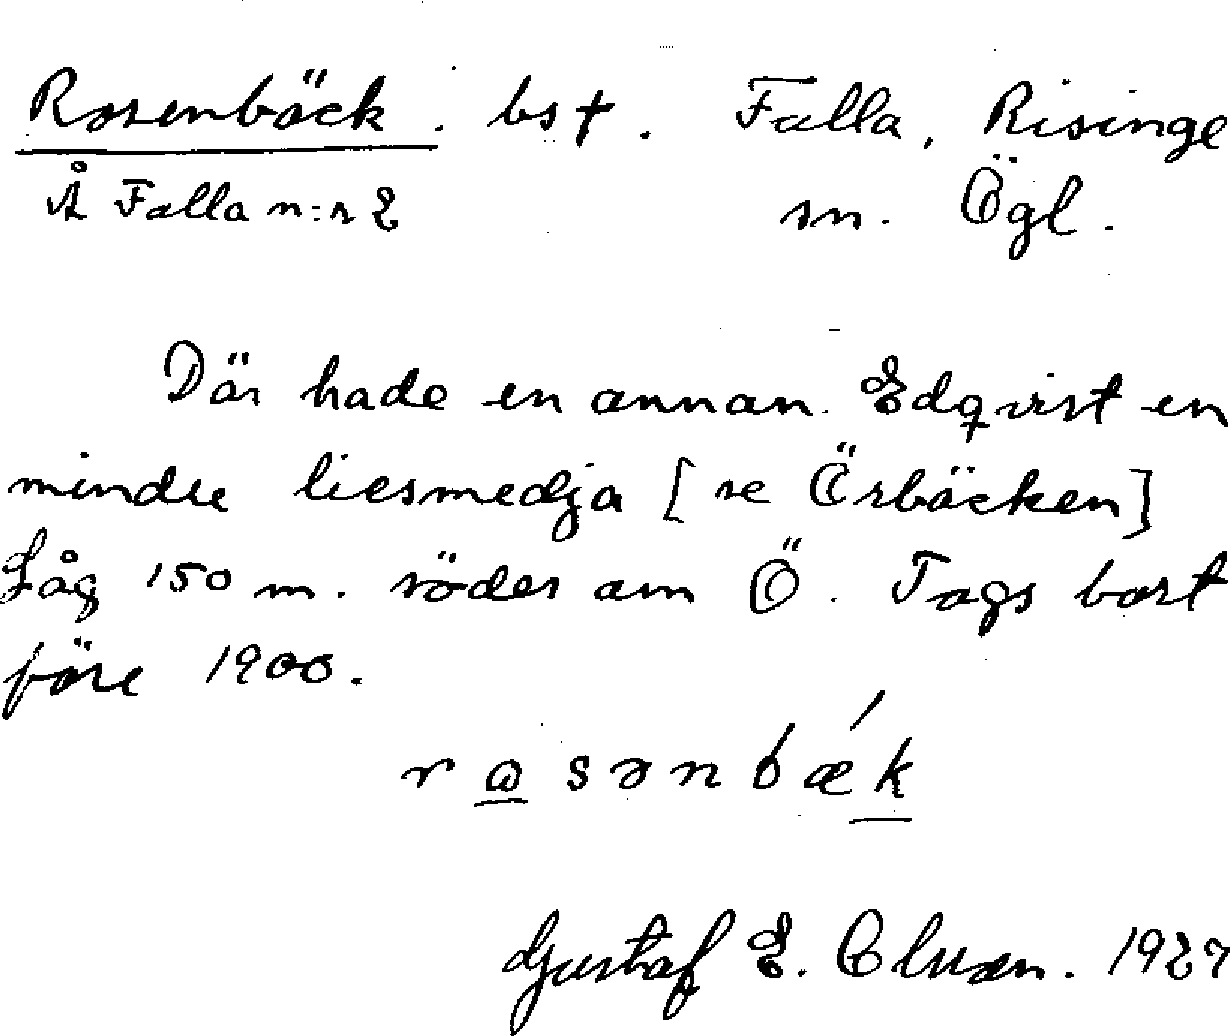 Rosenbäck. bst. Falla, Risinge
Å Falla n:r 2 sn. Ögl.
Där hade en annan Edqvist en
mindre liesmedja [se Örbäcken]
Låg 150 m. söder om Ö. Togs bort
före 1900.
Gustaf E. 1927